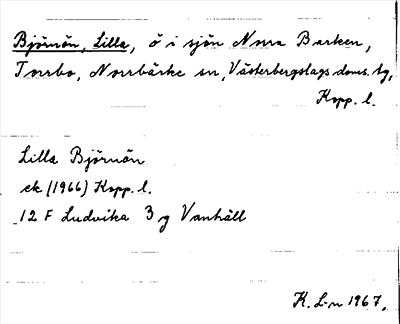 Björnön, Lilla, ö i sjön Norra Barken,
Torrbo, Norrbärke sn, Västerbergslags doms. tg,
Kopp. l.
Lilla Björnön
ek (1966) Kopp. l.
12 F Ludvika 3 g Vanhäll
K. L-n 1967.